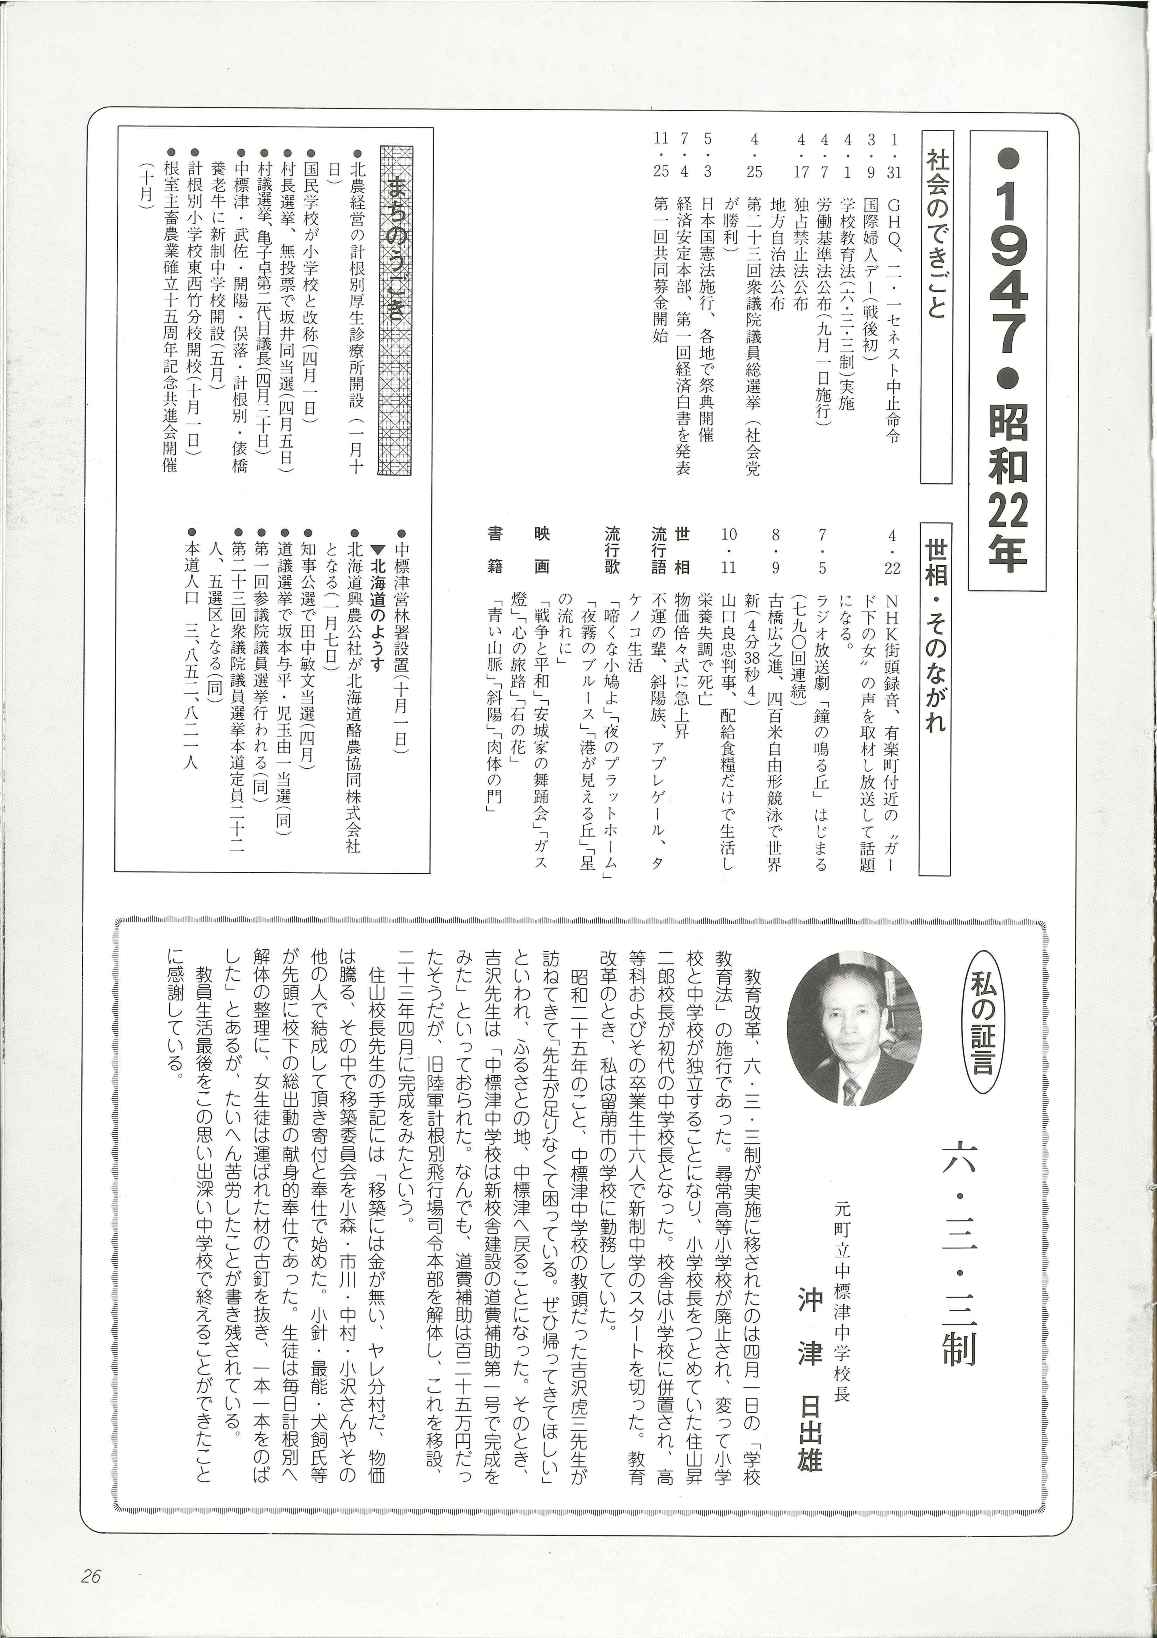 ●1947●昭和22年
社会のできごと
1・31 GHQ、二・一ゼネスト中止命令
3・9 国際婦人デー(戦後初)
4・1 学校教育法(六・三・三制)実施
4・7 労働基準法公布(九月一日施行)
4・17 独占禁止法公布
地方自治法公布
4・25 第二十三回衆議院議員総選挙(社会党
が勝利)
5・3 日本国憲法施行、各地で祭典開催
7・4 経済安定本部、第一回経済白書を発表
11・25 第一回共同募金開始
世相・そのながれ
4・22 NHK街頭録音、有楽町付近の〝ガー
ド下の女〟の声を取材し放送して話題
になる。
7・5 ラジオ放送劇「鐘の鳴る丘」はじまる
(七九〇回連続)
8・9 古橋広之進、四百米自由形競泳で世界
新(4分38秒4)
10・11 山口良忠判事、配給食糧だけで生活し
栄養失調で死亡
世相 物価倍々式に急上昇
流行語 不運の輩、斜陽族、アプレゲール、タ
ケノコ生活
流行歌 「啼くな小鳩よ」「夜のプラットホーム」
「夜霧のブルース」「港が見える丘」「星
の流れに」
映画 「戦争と平和」「安城家の舞踊会」「ガス
燈」「心の旅路」「石の花」
書籍 「青い山脈」「斜陽」「肉体の門」
まちのうごき
●北農経営の計根別厚生診療所開設(一月十
日)
●国民学校が小学校と改称(四月一日)
●村長選挙、無投票で坂井同当選(四月五日)
●村議選挙、亀子卓第二代月議長(四月三十日)
●中標津・武佐・開陽・俣落・計根別・俵橋
養老牛に新制中学校開設(五月)
●計根別小学校東西竹分校開校(十月一日)
●根室主畜農業確立十五周年記念共進会開催
(十月)
●中標津営林署設置(十月一日)
▼北海道のようす
●北海道興農公社が北海道酪農協同株式会社
となる(一月七日)
●知事公選で田中敏文当選(四月)
●道議選挙で坂本与平・児玉由一当選(同)
●第一回参議院議員選挙行われる(同)
●第二十三回衆議院議員選挙本道定員二十二
人、五選区となる(同)
●本道人口 三、八五二、八二一人
私の証言
六・三・三制
元町立中標津中学校長
沖津 日出雄
教育改革、六・三・三制が実施に移されたのは四月一日の「学校
教育法」の施行であった。尋常高等小学校が廃止され、変って小学
校と中学校が独立することになり、小学校長をつとめていた住山昇
二郎校長が初代の中学校長となった。校舎は小学校に併置され、高
等科およびその卒業生十六人で新制中学のスタートを切った。教育
改革のとき、私は留萌市の学校に勤務していた。
昭和二十五年のこと、中標津中学校の教頭だった吉沢虎三先生が
訪ねてきて「先生が足りなくて困っている。ぜひ帰ってきてほしい」
といわれ、ふるさとの地、中標津へ戻ることになった。そのとき、
吉沢先生は「中標津中学校は新校舎建設の道費補助第一号で完成を
みた」といっておられた。なんでも、道費補助は百二十五万円だっ
たそうだが、旧陸軍計根別飛行場司令本部を解体し、これを移設、
二十三年四月に完成をみたという。
住山校長先生の手記には「移築には金が無い、ヤレ分村だ、物価
は騰る、その中で移築委員会を小森・市川・中村・小沢さんやその
他の人で結成して頂き寄付と奉仕で始めた。小針・最能・犬飼氏等
が先頭に校下の総出動の献身的奉仕であった。生徒は毎日計根別へ
解体の整理に、女生徒は運ばれた材の古釘を抜き、一本一本をのば
した」とあるが、たいへん苦労したことが書き残されている。
教員生活最後をこの思い出深い中学校で終えることができたこと
に感謝している。
26